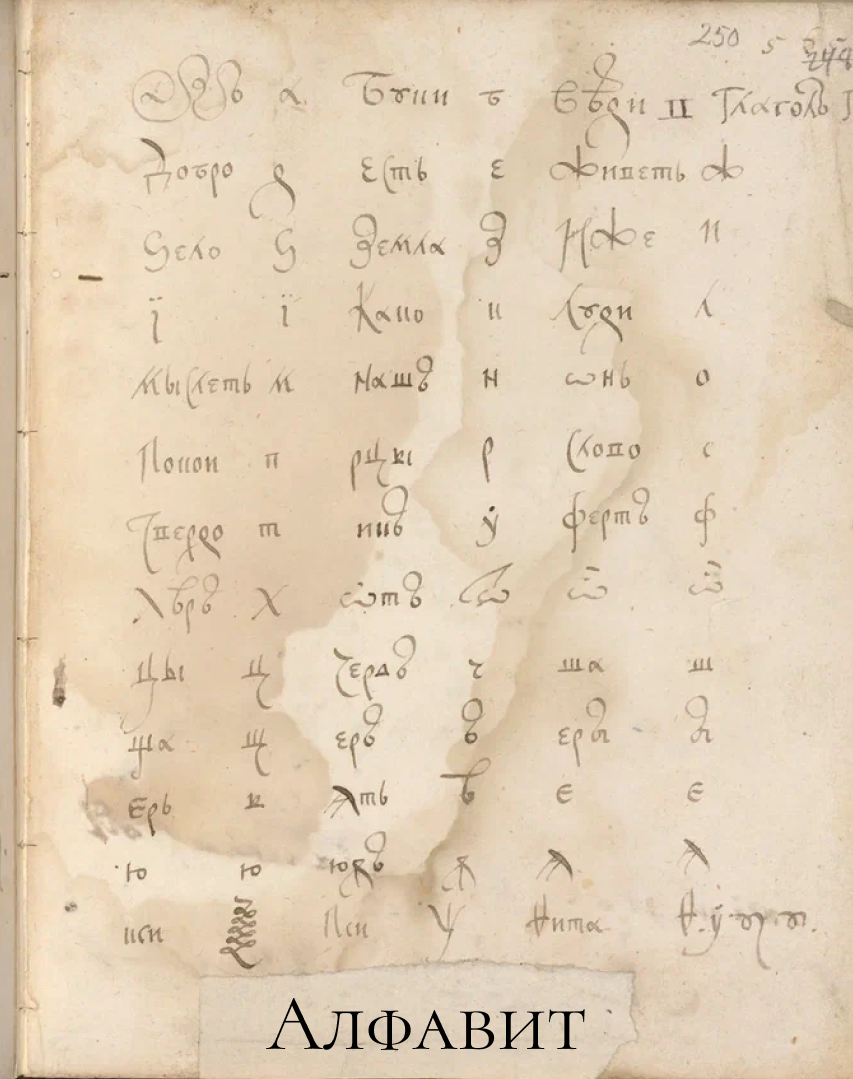 250 5
Азъ а Буки б Вѣди в Глаголь г
Добро д Есть е Живеть ж
Ѕело ѕ Земла з Иже и
ї ї Како к Люди л
Мыслеть м Нашъ н Ѡнь о
Покои п рцы р Слово с
Твердо т икъ у́ фертъ ф
Хѣръ х ѡтъ ѿ
цы ц Червъ ч ша ш
ща щ еръ ъ еры ы
Ерь ь ять ѣ є є
ю ю юсъ ѫ ѧ ѧ
кси ѯ Пси ѱ Ѳита ѳ.
Алфавит